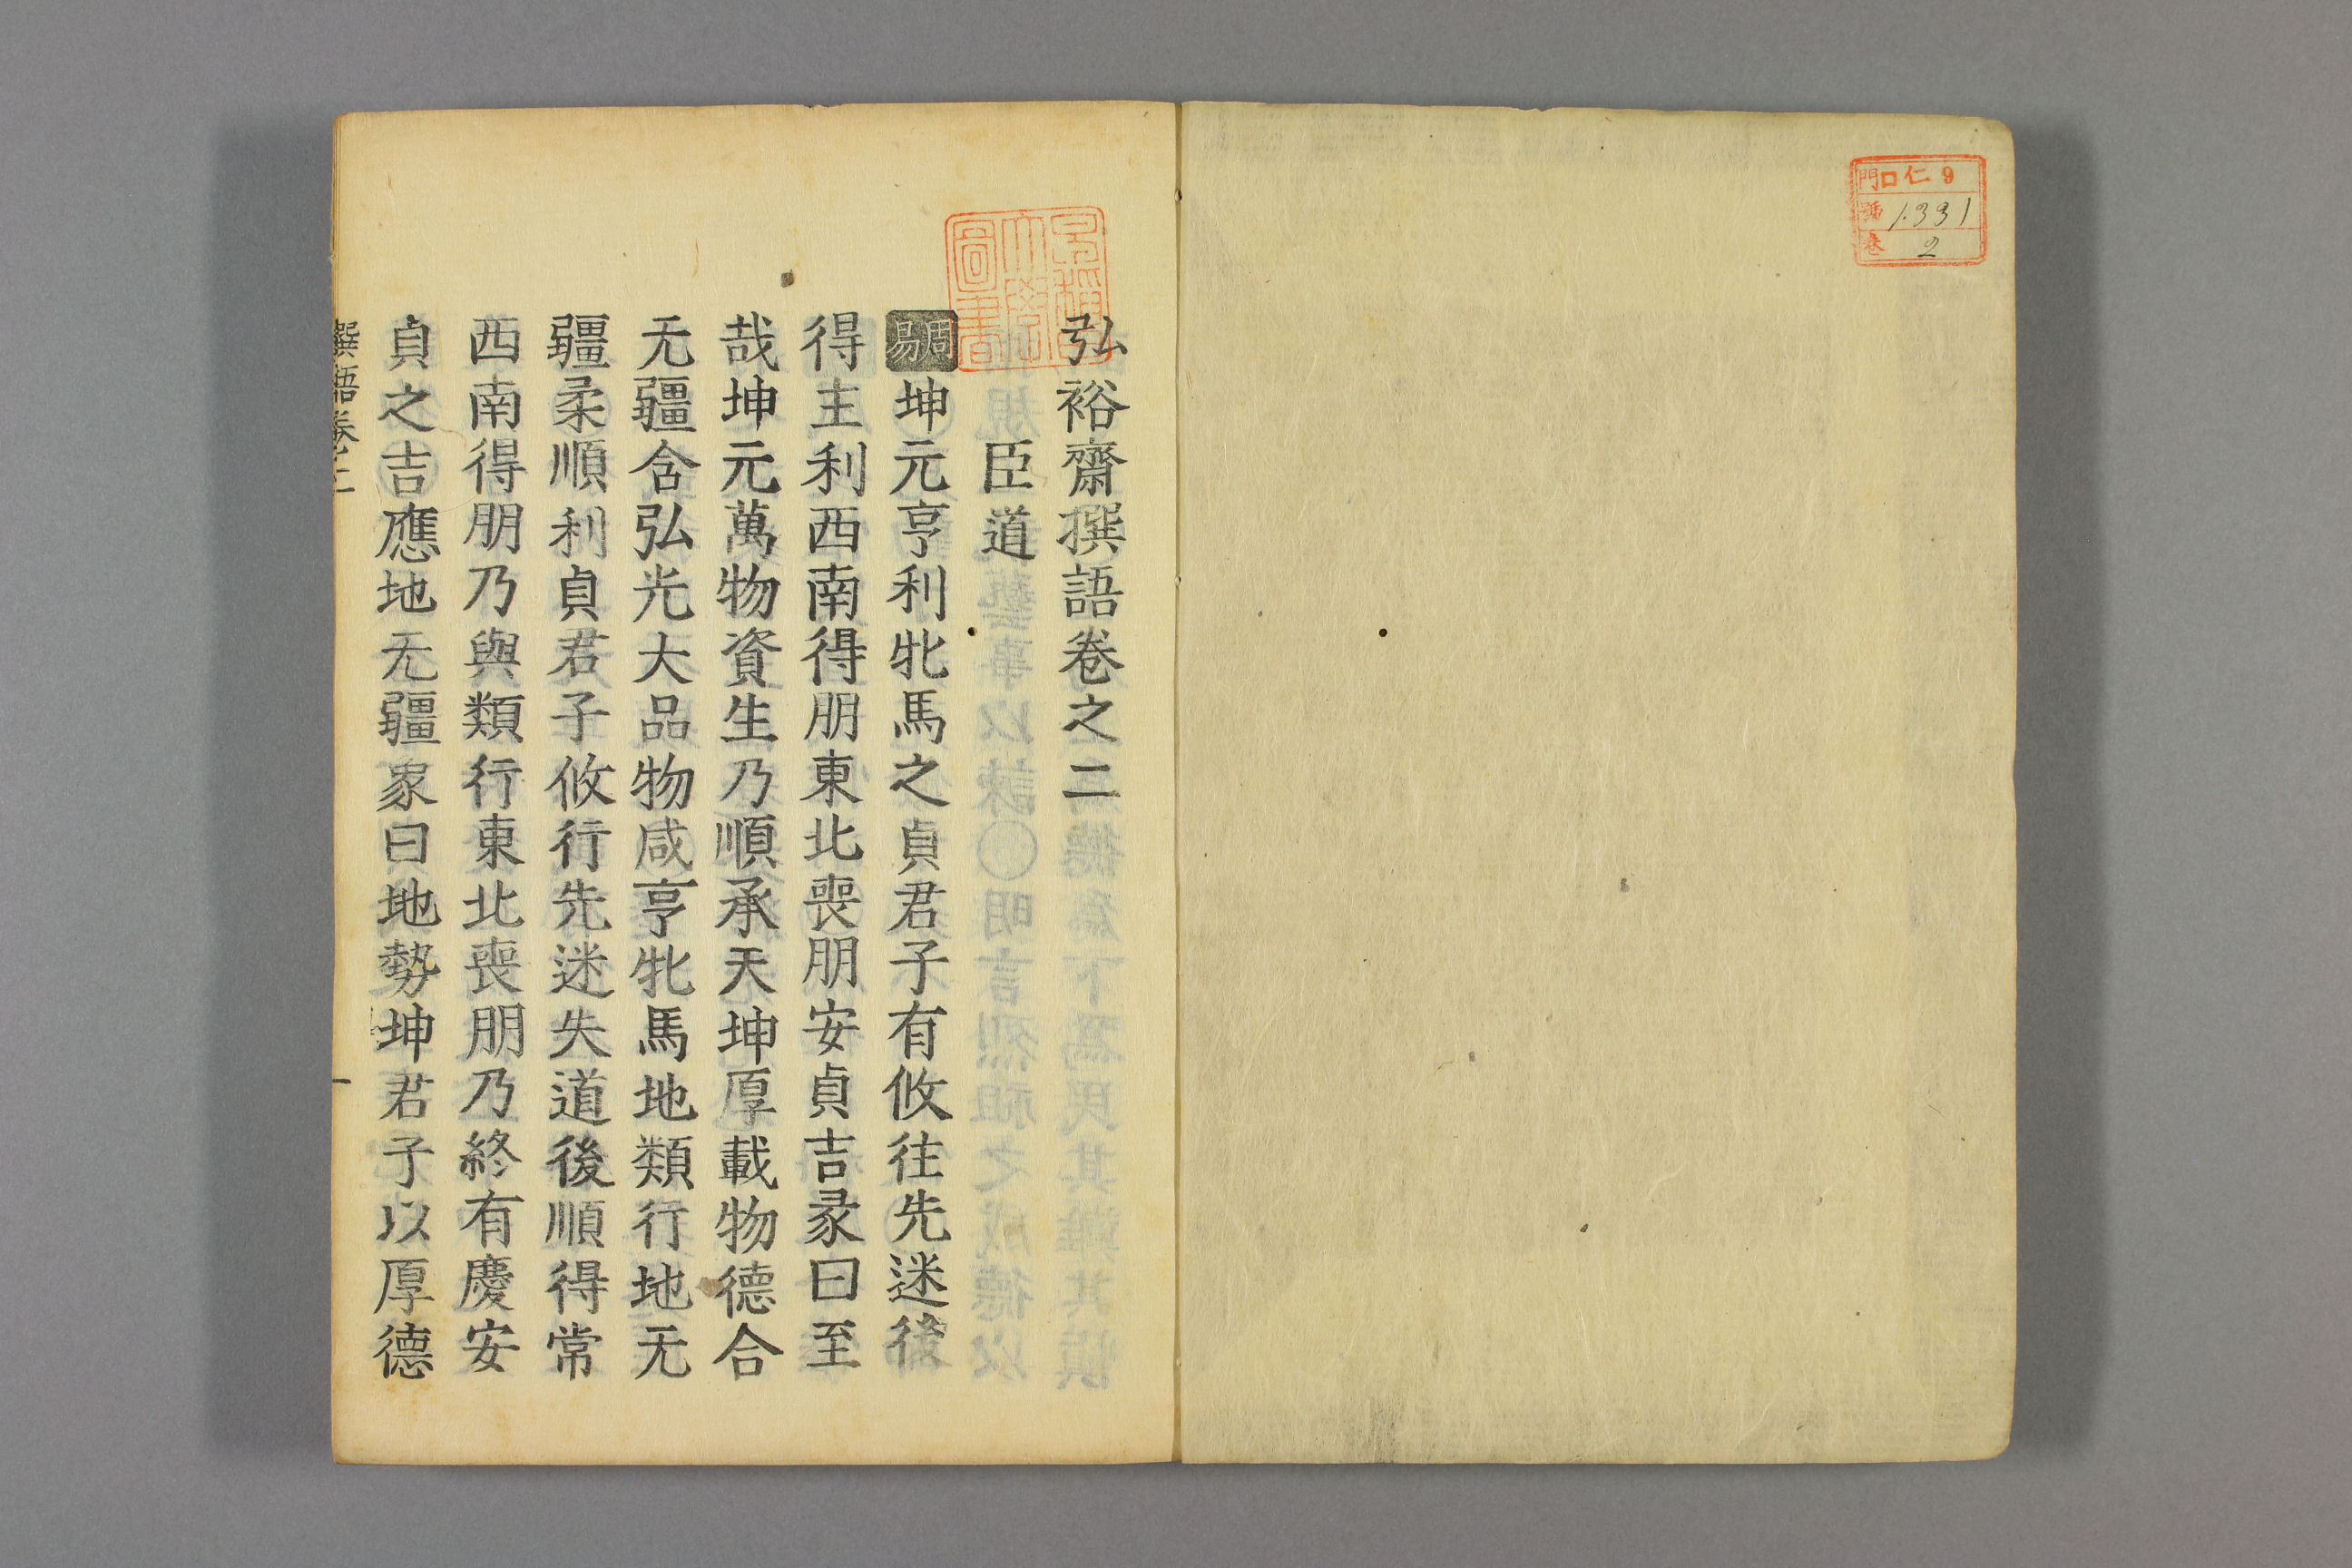 門 口仁 9
號 1331
卷 2
弘裕齋撰語卷之二
臣道
周易 坤元亨利牝馬之貞君子有攸往先迷後
得主利西南得朋東北喪朋安貞吉彖曰至
哉坤元萬物資生乃順承天坤厚載物德合
无疆含弘光大品物咸亨牝馬地類行地无
疆柔順利貞君子攸行先迷失道後順得常
西南得朋乃與類行東北喪朋乃終有慶安
貞之吉應地无疆象曰地勢坤君子以厚德
撰語卷二 一